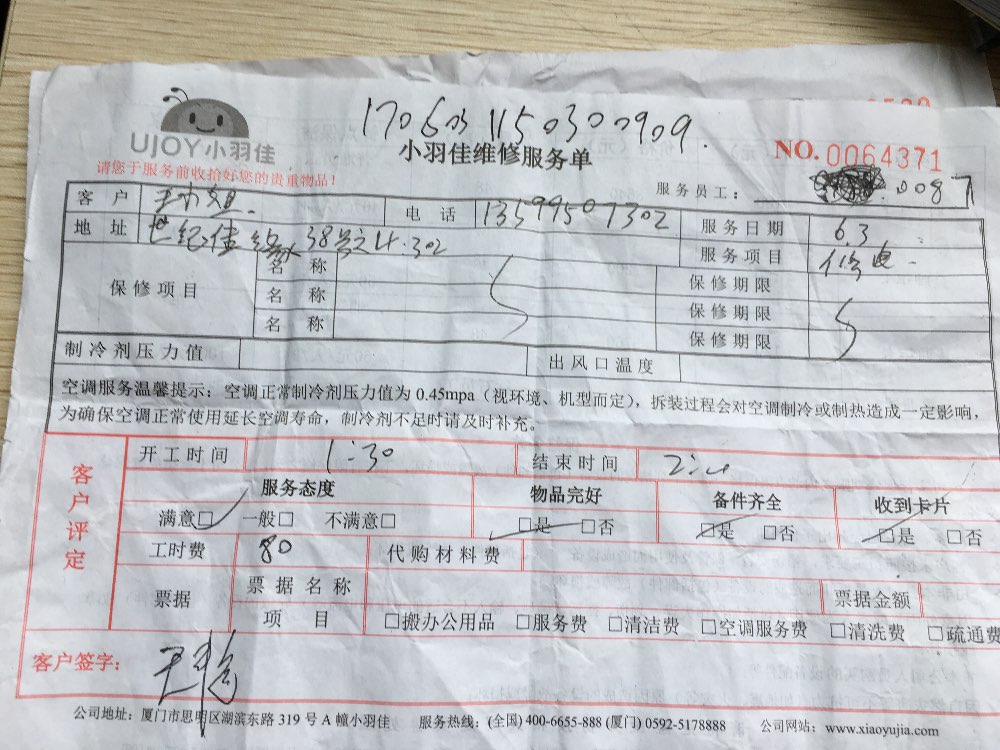 1706031150300909.
UJOY小羽佳
小羽佳维修服务单
NO.0064371
请您于服务前收拾好您的贵重物品！
服务员工： 0087
客户 电话 13599507302 服务日期 6.3
地址 世纪佳缘 38号之4.302 服务项目 修电
保修项目 名称 保修期限
名称 保修期限
名称 保修期限
制冷剂压力值 出风口温度
空调服务温馨提示：空调正常制冷剂压力值为 0.45mpa（视环境、机型而定），拆装过程会对空调制冷或制热造成一定影响，
为确保空调正常使用延长空调寿命，制冷剂不足时请及时补充。
客户评定
开工时间 1:30 结束时间
服务态度 物品完好 备件齐全 收到卡片
满意□ 一般□ 不满意□ □是 □否 □是 □否 □是 □否
工时费 80 代购材料费
票据 票据名称 票据金额
项目 □搬办公用品 □服务费 □清洁费 □空调服务费 □清洗费 □疏通费
客户签字：
公司地址：厦门市思明区湖滨东路 319 号 A 幢小羽佳 服务热线：(全国) 400-6655-888 (厦门) 0592-5178888 公司网站：www.xiaoyujia.com